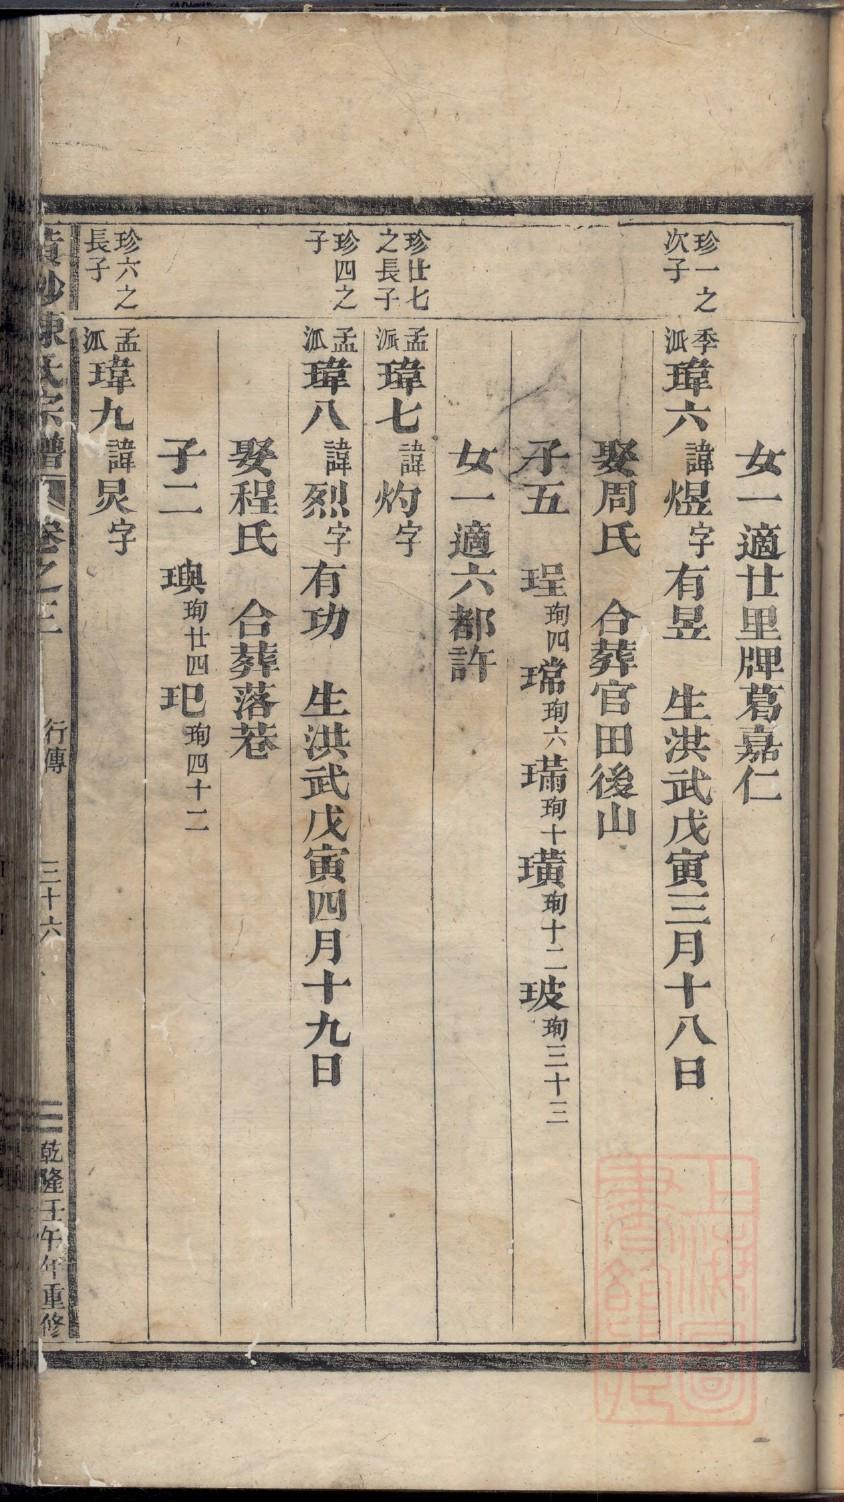 女一適廿里牌葛嘉仁
珍一之次子
季派瑋六諱煜字有昱 生洪武戊寅三月十八日
娶周氏 合葬官田後山
子五 珵珣四瑺珣六璊珣十璜珣十二玻珣三十三
女一適六都許
珍廿七之長子
孟派瑋七諱灼字
珍四之子
孟派瑋八諱烈字有功 生洪武戊寅四月十九日
娶程氏 合葬落塟
子二 璵珣廿四玘珣四十二
珍六之長子
孟派瑋九諱炅字
陳氏宗譜 卷之三 行傳 三十六 乾隆壬午年重修
上海圖書館藏